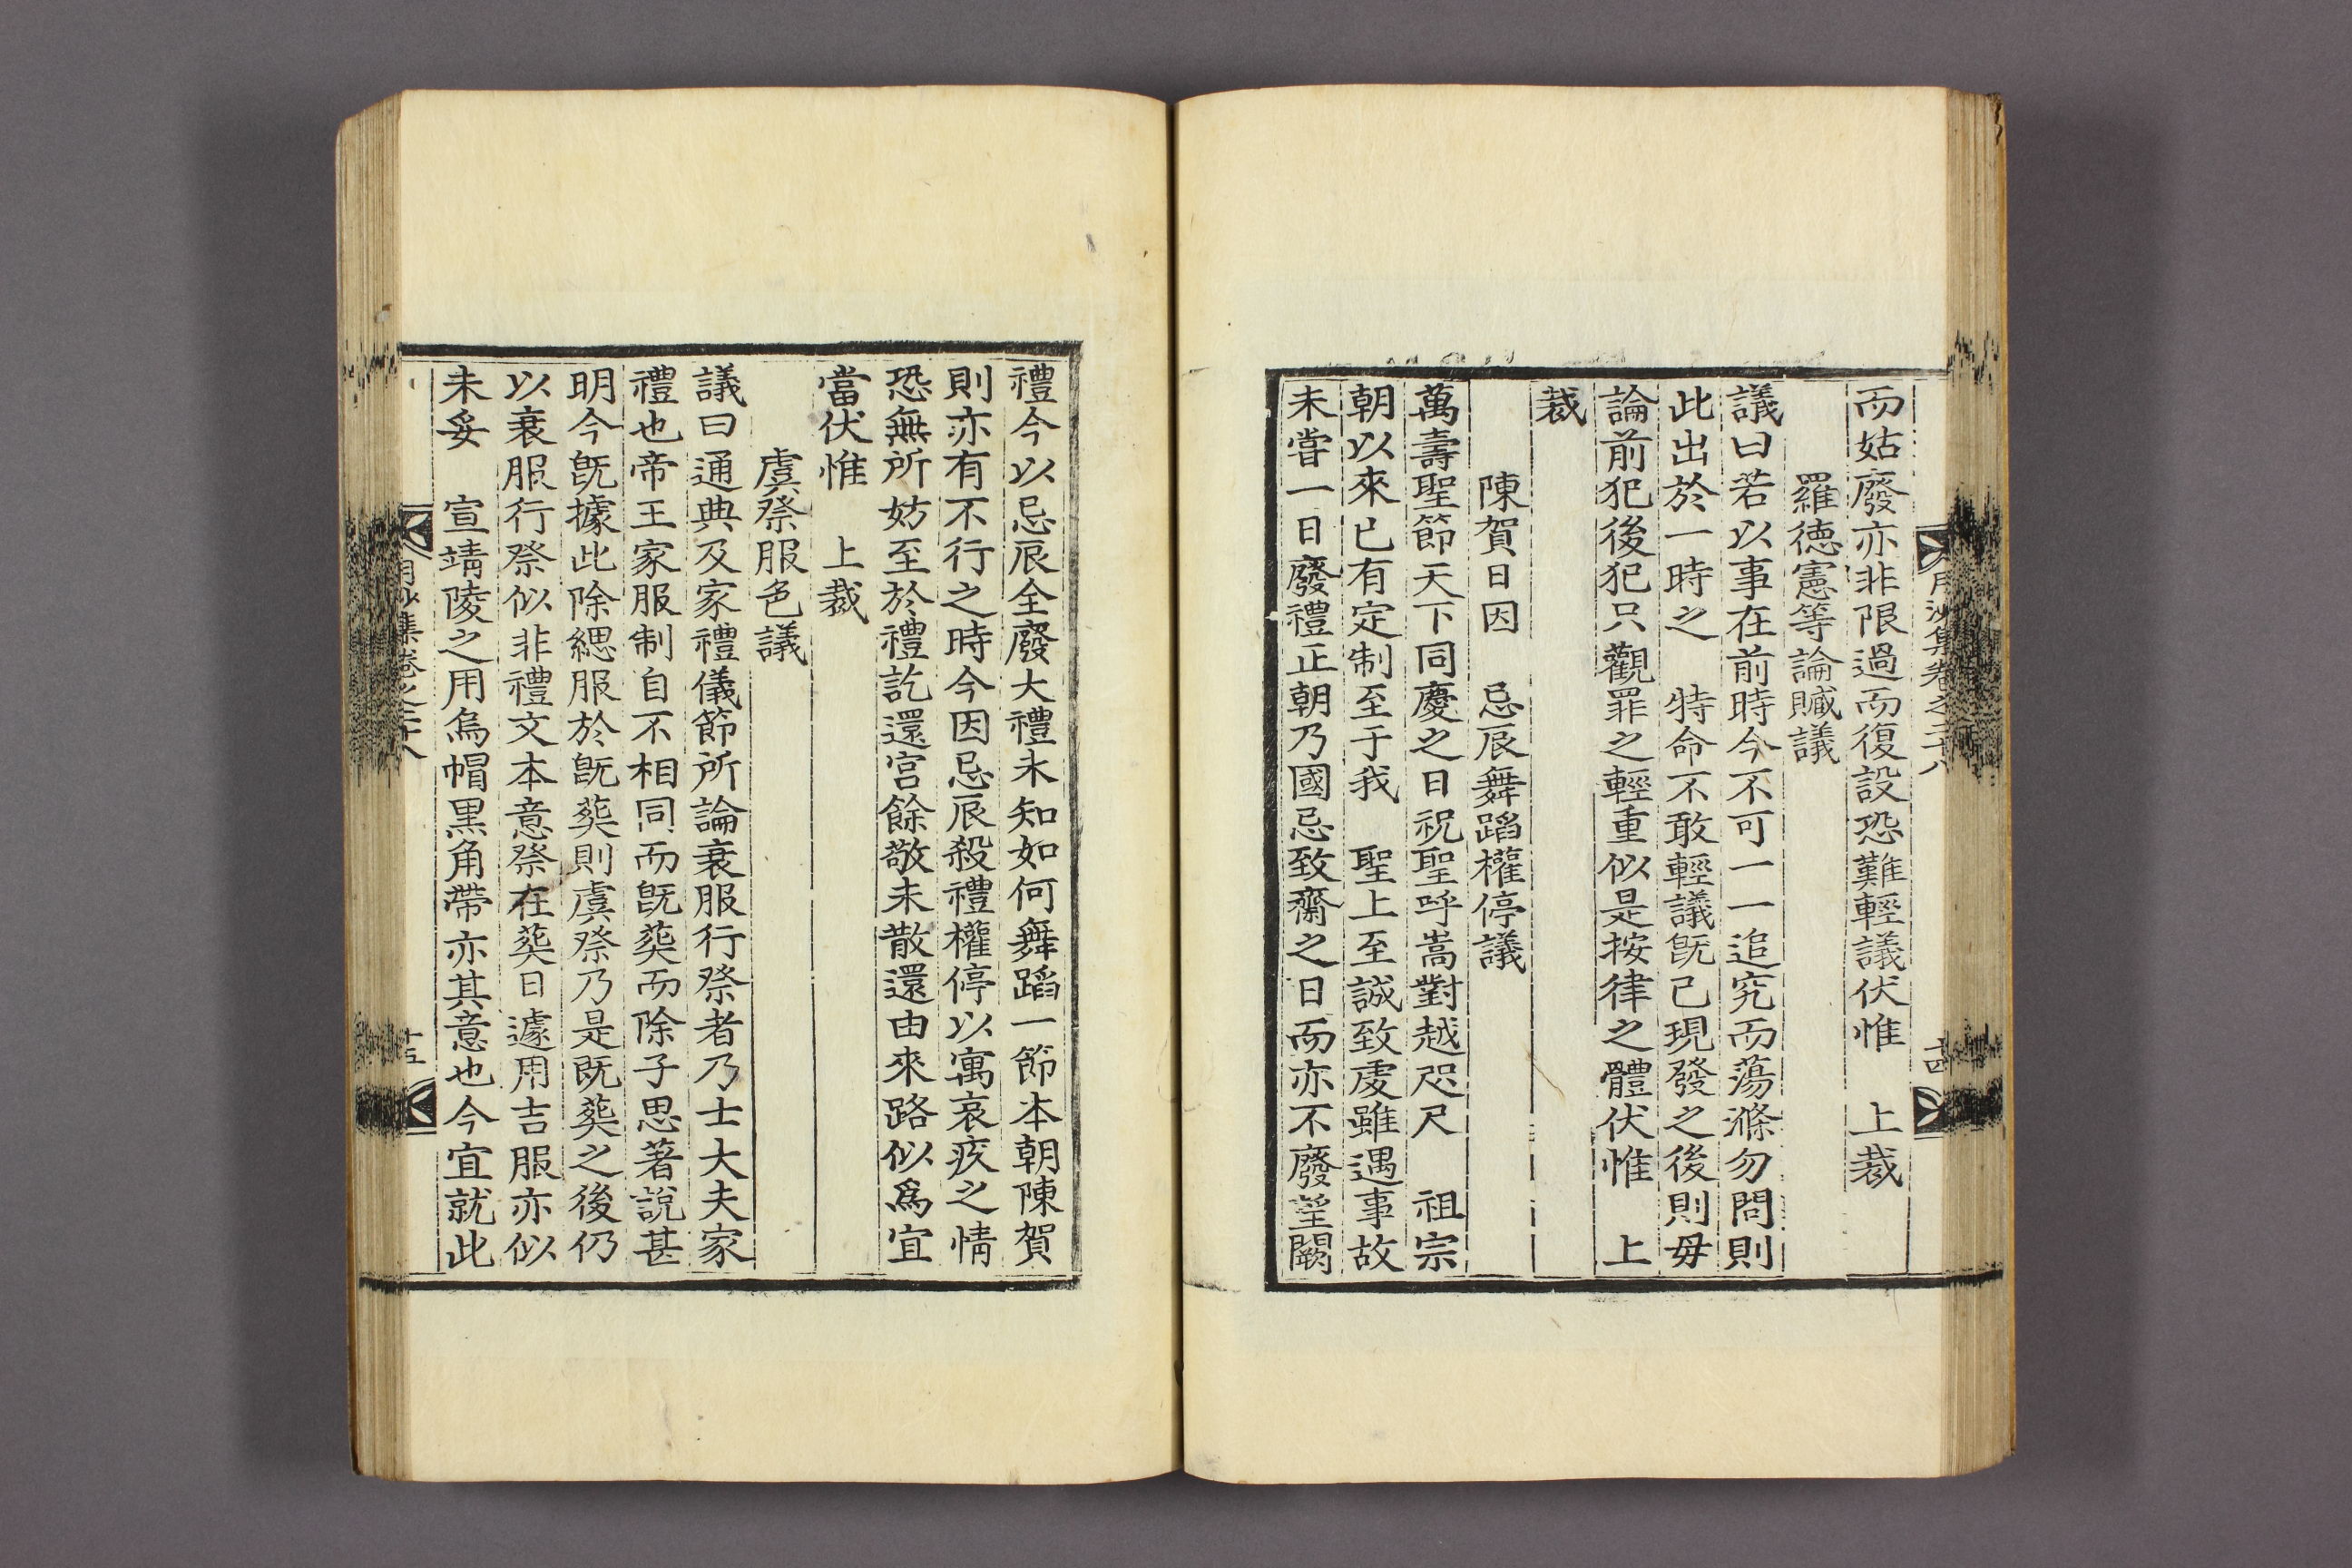 月沙集卷之二十八
十四
而姑廢亦非限過而復設恐難輕議伏惟　上裁
羅德憲等論贓議
議曰若以事在前時今不可一一追究而蕩滌勿問則
此出於一時之　特命不敢輕議旣已現發之後則毋
論前犯後犯只觀罪之輕重似是按律之體伏惟　上
裁
陳賀日因　忌辰舞蹈權停議
萬壽聖節天下同慶之日祝聖呼嵩對越咫尺　祖宗
朝以來已有定制至于我　聖上至誠致虔雖遇事故
未嘗一日廢禮正朝乃國忌致齋之日而亦不廢望闕
禮今以忌辰全廢大禮未知如何舞蹈一節本朝陳賀
則亦有不行之時今因忌辰殺禮權停以寓哀疚之情
恐無所妨至於禮訖還宮餘敬未散還由來路似爲宜
當伏惟　上裁
虞祭服色議
議曰通典及家禮儀節所論衰服行祭者乃士大夫家
禮也帝王家服制自不相同而旣葬而除子思著說甚
明今旣據此除緦服於旣葬則虞祭乃是旣葬之後仍
以衰服行祭似非禮文本意祭在葬日遽用吉服亦似
未妥　宣靖陵之用烏帽黑角帶亦其意也今宜就此
月沙集卷之二十八
十五